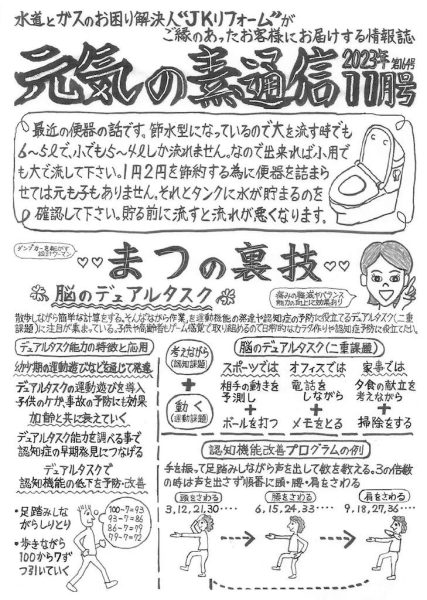 水道とガスのお困り解決人“JKリフォーム”が
ご縁のあったお客様にお届けする情報誌
元気の素通信
2023年
第164号
11月号
最近の便器の話です。節水型になっているので大を流す時でも
6〜5ℓで、小でも5〜4ℓしか流れません。なので出来れば小用で
も大で流して下さい。1円2円を節約する為に便器を詰まら
せては元も子もありません。それとタンクに水が貯まるのを
確認して下さい。貯る前に流すと流れが悪くなります。
まつの裏技
脳のデュアルタスク
痛みの軽減やバランス
能力の向上に効果あり
散歩しながら簡単な計算をする。そんな「ながら作業」を運動機能の発達や認知症の予防に役立てるデュアルタスク(二重
課題)に注目が集まっている。子供や高齢者もゲーム感覚で取り組めるので日常的なカラダ作りや認知症予防に役立てたい。
デュアルタスク能力の特徴と応用
幼少期の運動遊びなどを通じて発達
デュアルタスクの運動遊びを導入
子供のケガ、事故の予防にも効果
加齢と共に衰えていく
デュアルタスク能力を調べる事で
認知症の早期発見につなげる
デュアルタスクで
認知機能の低下を予防・改善
・足踏みしな
がらしりとり
・歩きながら
100から7ず
つ引いていく
100-7=93
93-7=86
86-7=79
79-7=72
考えながら
(認知課題)
+
動く
(運動課題)
脳のデュアルタスク(二重課題)
スポーツでは
相手の動きを
予測し
+
ボールを打つ
オフィスでは
電話を
しながら
+
メモをとる
家事では
夕食の献立を
考えながら
+
掃除をする
認知機能改善プログラムの例
手を振って足踏みしながら声を出して数を数える。3の倍数
の時は声を出さず順番に頭・腰・肩をさわる
頭をさわる
3,12,21,30‥‥
腰をさわる
6,15,24,33‥‥
肩をさわる
9,18,27,36‥‥